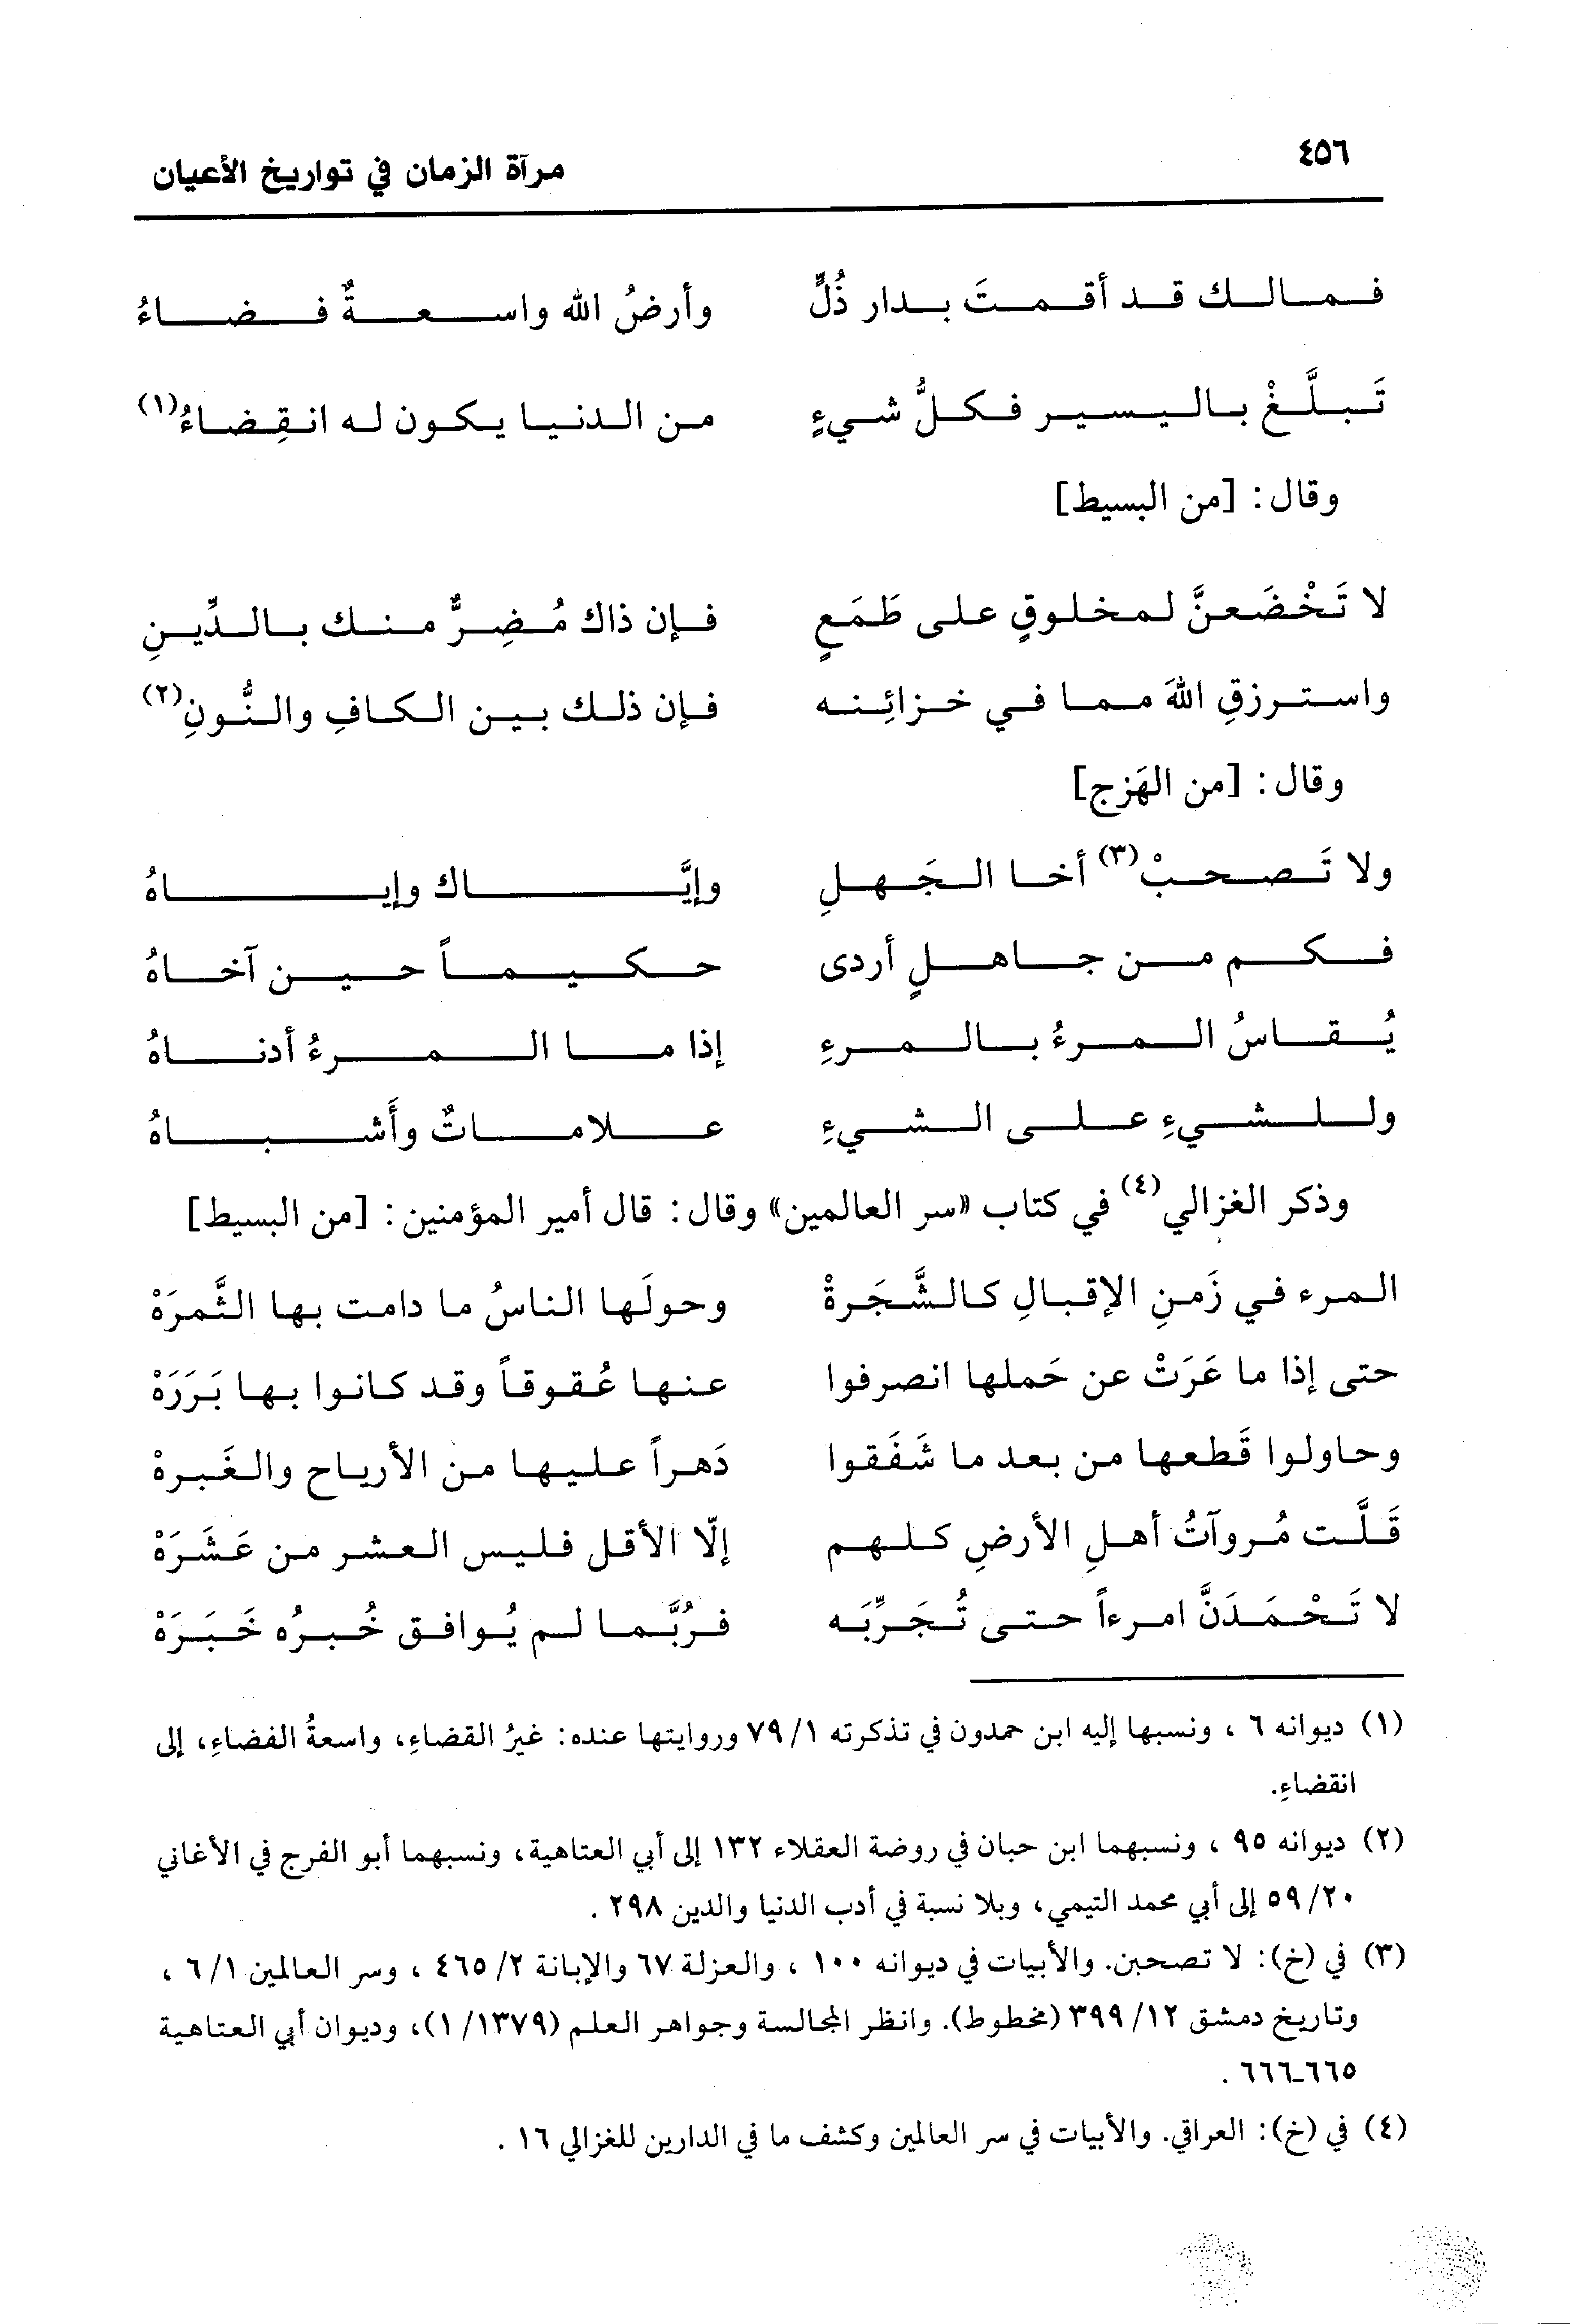 ٤٥٦
مرآة الزمان في تواريخ الأعيان
فمالك قد أقمتَ بدار ذُلٍّ وأرضُ الله واسعةٌ فضاءُ
تَبلَّغْ باليسير فكلُّ شيءٍ من الدنيا يكون له انقِضاءُ(١)
وقال: [من البسيط]
لا تَخْضَعنَّ لمخلوقٍ على طَمَعٍ فإن ذاك مُضِرٌّ منك بالدِّينِ
واسترزقِ اللهَ مما في خزائِنه فإن ذلك بين الكافِ والنُّونِ(٢)
وقال: [من الهَزج]
ولا تَصحبْ(٣) أخا الجَهلِ وإيَّاك وإياهُ
فكم من جاهلٍ أردى حكيماً حين آخاهُ
يُقاسُ المرءُ بالمرءِ إذا ما المرءُ أدناهُ
وللشيءِ على الشيءِ علاماتٌ وأَشباهُ
وذكر الغزالي(٤) في كتاب «سر العالمين» وقال: قال أمير المؤمنين: [من البسيط]
المرء في زَمنِ الإقبالِ كالشَّجَرةْ وحولَها الناسُ ما دامت بها الثَّمرَهْ
حتى إذا ما عَرَتْ عن حَملها انصرفوا عنها عُقوقاً وقد كانوا بها بَرَرَهْ
وحاولوا قَطعها من بعد ما شَفَقوا دَهراً عليها من الأرياح والغَبرهْ
قَلَّت مُروآتُ أهلِ الأرضِ كلهم إلّا الأقل فليس العشر من عَشَرَهْ
لا تَحْمَدَنَّ امرءاً حتى تُجَرِّبَه فرُبَّما لم يُوافق خُبرُه خَبَرَهْ
(١) ديوانه ٦ ، ونسبها إليه ابن حمدون في تذكرته ١/ ٧٩ وروايتها عنده: غيرُ القضاءِ، واسعةُ الفضاءِ، إلى
انقضاءِ.
(٢) ديوانه ٩٥ ، ونسبهما ابن حبان في روضة العقلاء ١٣٢ إلى أبي العتاهية، ونسبهما أبو الفرج في الأغاني
٢٠/ ٥٩ إلى أبي محمد التيمي، وبلا نسبة في أدب الدنيا والدين ٢٩٨ .
(٣) في (خ): لا تصحبن. والأبيات في ديوانه ١٠٠ ، والعزلة ٦٧ والإبانة ٢/ ٤٦٥ ، وسر العالمين ١/ ٦ ،
وتاريخ دمشق ١٢/ ٣٩٩ (مخطوط). وانظر المجالسة وجواهر العلم (١٣٧٩/ ١)، وديوان أبي العتاهية
٦٦٥ـ٦٦٦ .
(٤) في (خ): العراقي. والأبيات في سر العالمين وكشف ما في الدارين للغزالي ١٦ .